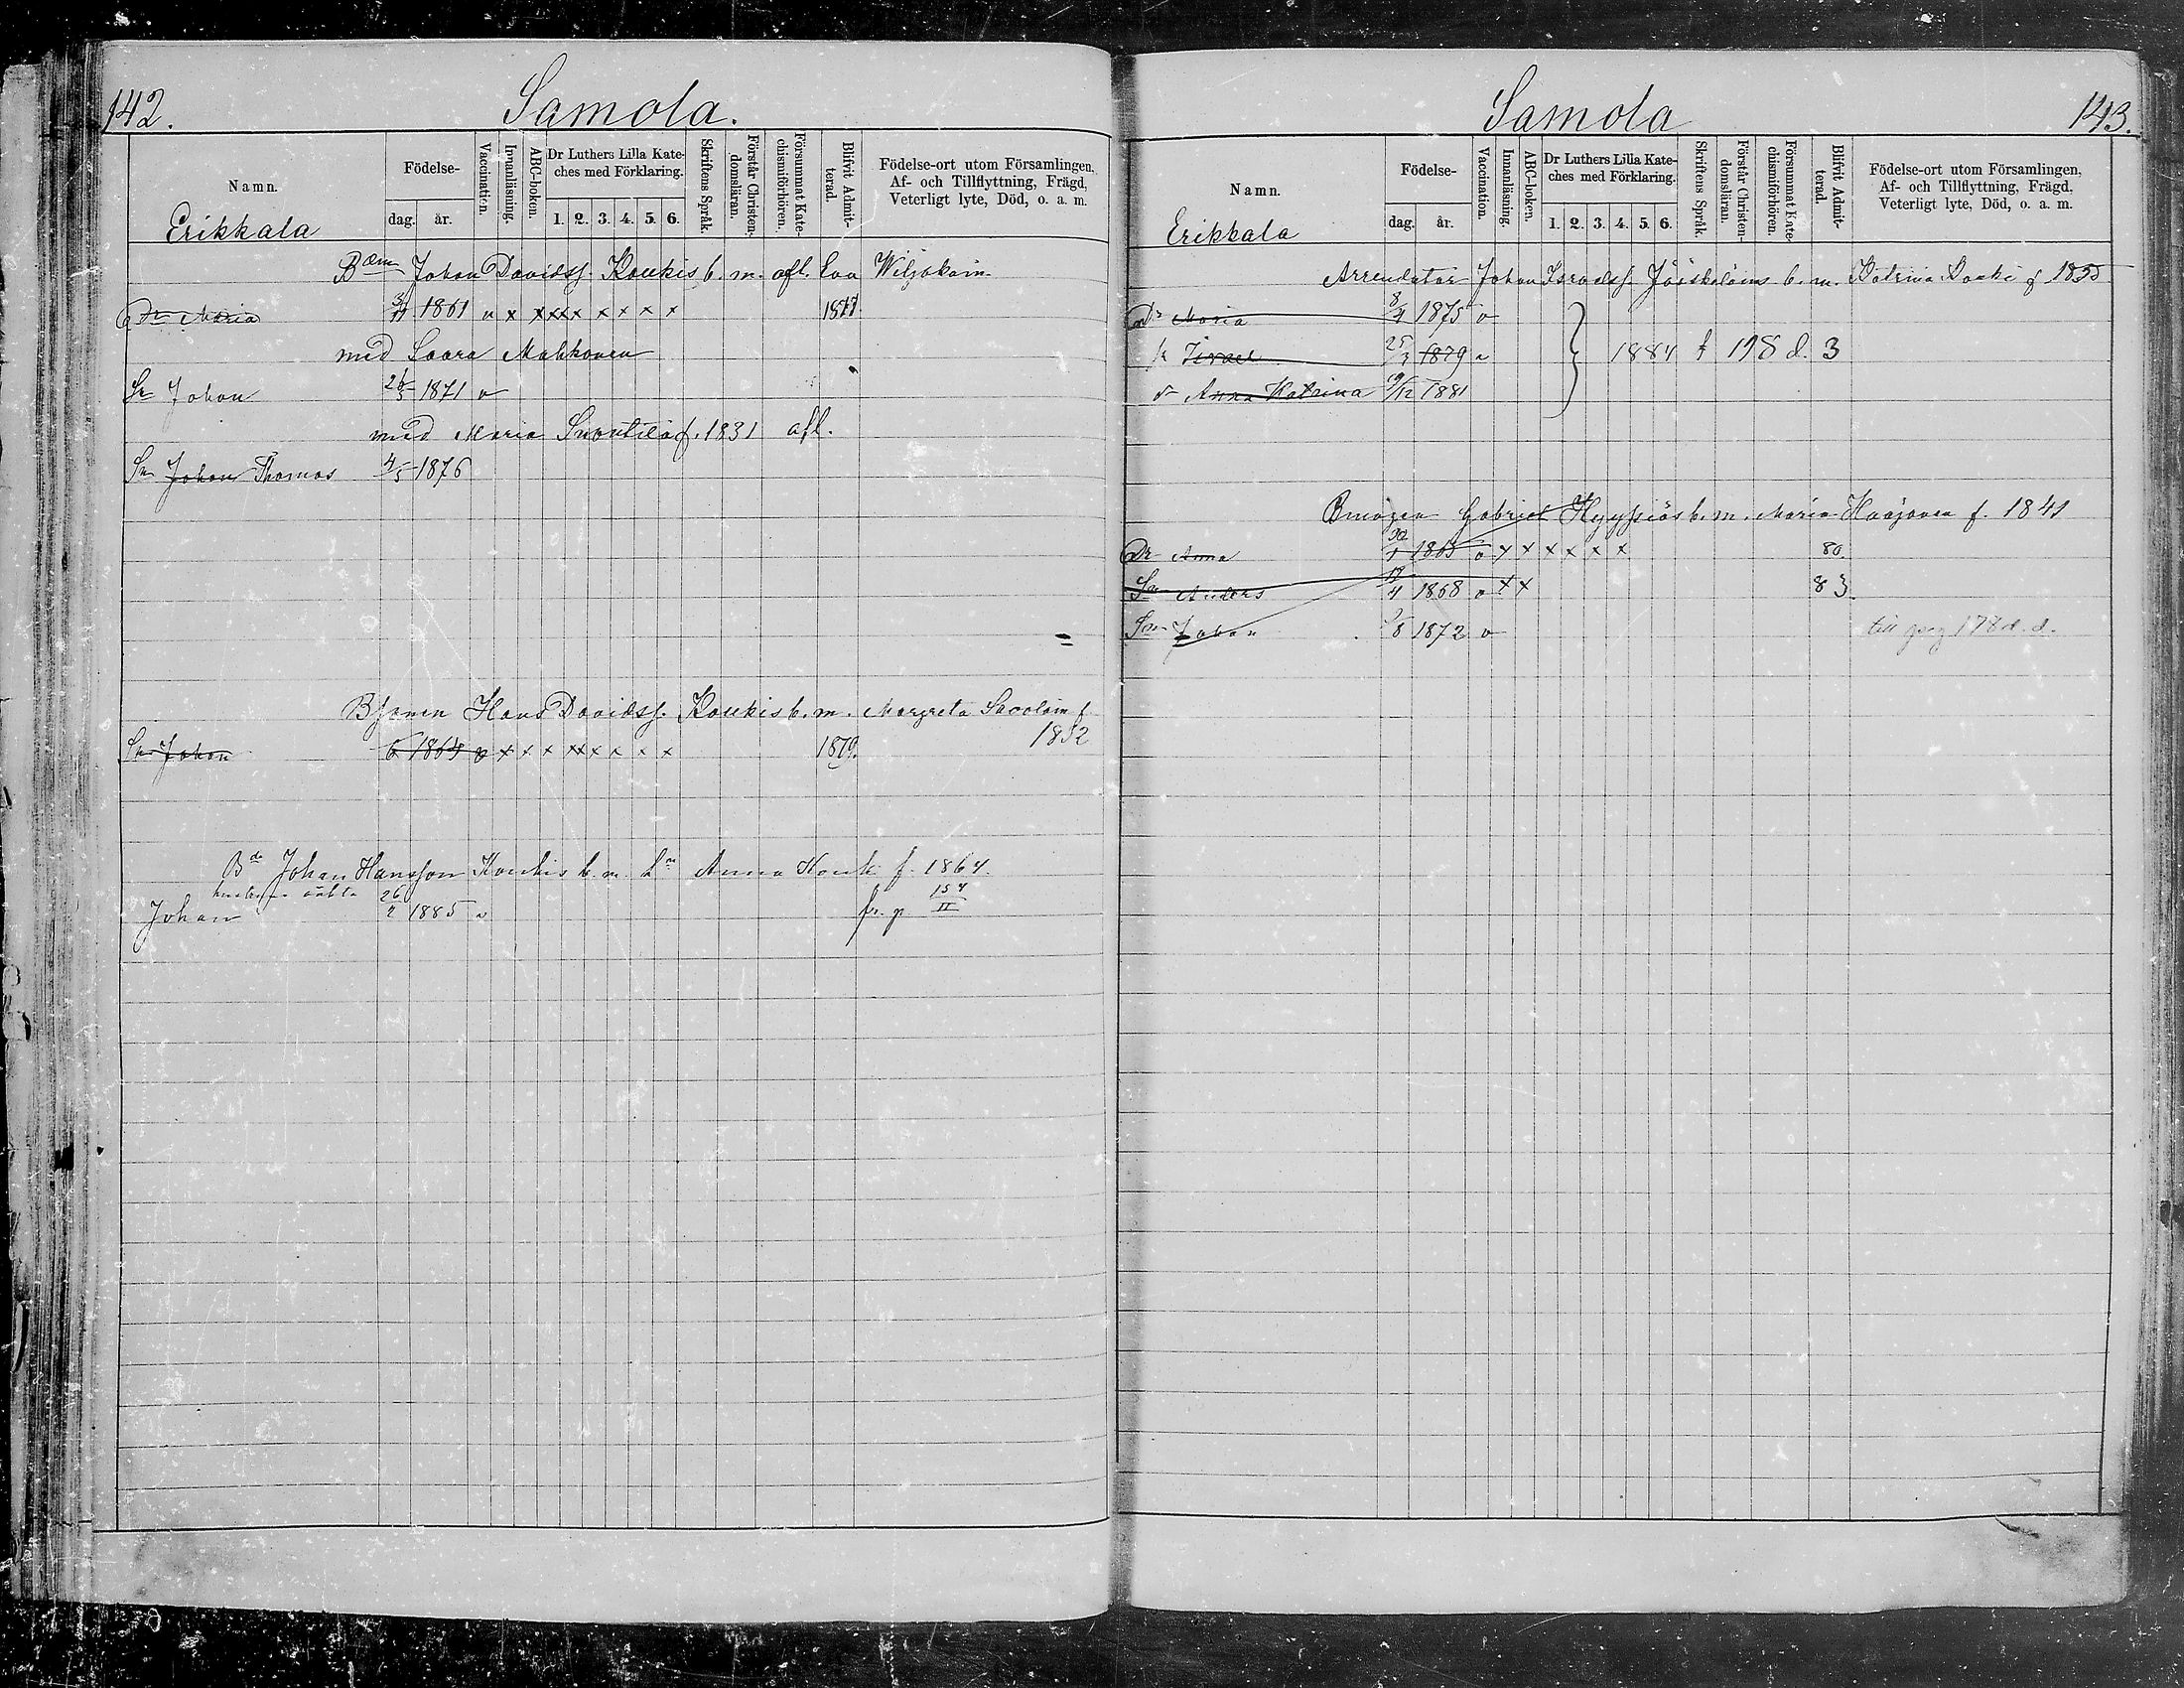 142.
Samola.
Namn.
Födelse-
dag.
år.
Vaccination.
Innanläsning.
ABC-boken.
Dr Luthers Lilla Kate-
ches med Förklaring.
1. 2. 3. 4. 5. 6.
Skriftens Språk.
Förstår Christen-
domsläran.
Försummat Kate-
chismiförhören.
Blifvit Admit-
terad.
Födelse-ort utom Församlingen,
Af- och Tillflyttning, Frägd,
Veterligt lyte, Död, o. a. m.
Erikkala
Johan Davidss. Koukis b. m. afl. Eva Wiljakain
Dr Maria 1861 v x x x x x x x x x 1877
med Saara Mahkonen
Sn Johan 1871 v
med Maria f. 1831 afl.
Sn Johan Thomas 4/5 1876
Hans Davidss. Koukis b. m. Margreta Savolain f.
1852
Sn Johan 6 1864 v x x x x x x x x x 1879.
Johan Hansson Koukis b. m. Anna Kouki f. 1864.
äkta
Johan 26/2 1885 v fr. p 154/II
Samola
143.
Namn.
Födelse-
dag.
år.
Vaccination.
Innanläsning.
ABC-boken.
Dr Luthers Lilla Kate-
ches med Förklaring.
1. 2. 3. 4. 5. 6.
Skriftens Språk.
Förstår Christen-
domsläran.
Försummat Kate-
chismiförhören.
Blifvit Admit-
terad.
Födelse-ort utom Församlingen,
Af- och Tillflyttning, Frägd,
Veterligt lyte, Död, o. a. m.
Erikkala
Arrendator Johan Israelss. Jääskeläins b. m. Katrina f 1850
Dr Maria 8/4 1875 v
Israel 25/3 1879 v 1884 198 d. 3
Anna Katrina 9/12 1881
Gabriel Hyypiäs b. m. Maria f. 1841
Dr Anna 1865 v x x x x x x 80.
Sn Anders 19/4 1868 v x x 83
Sn Johan 1872 v till pag 178 d. d.